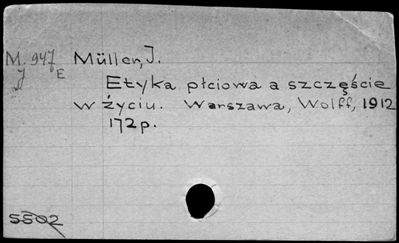 M. 947 Müller, J.
J E
Etyka płciowa a szczęście
w życiu. Warszawa, Wolff, 1912
172p.
5502